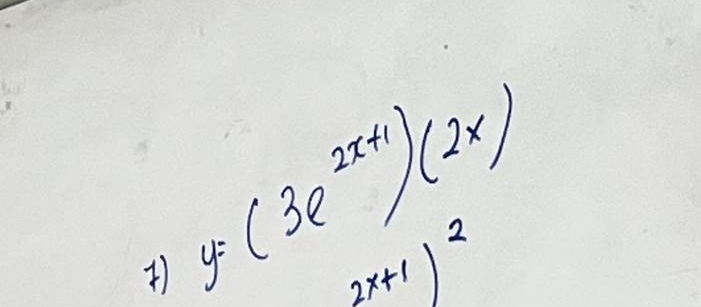 7) y= (3e^{2x+1})(2x)
2x+1)^2